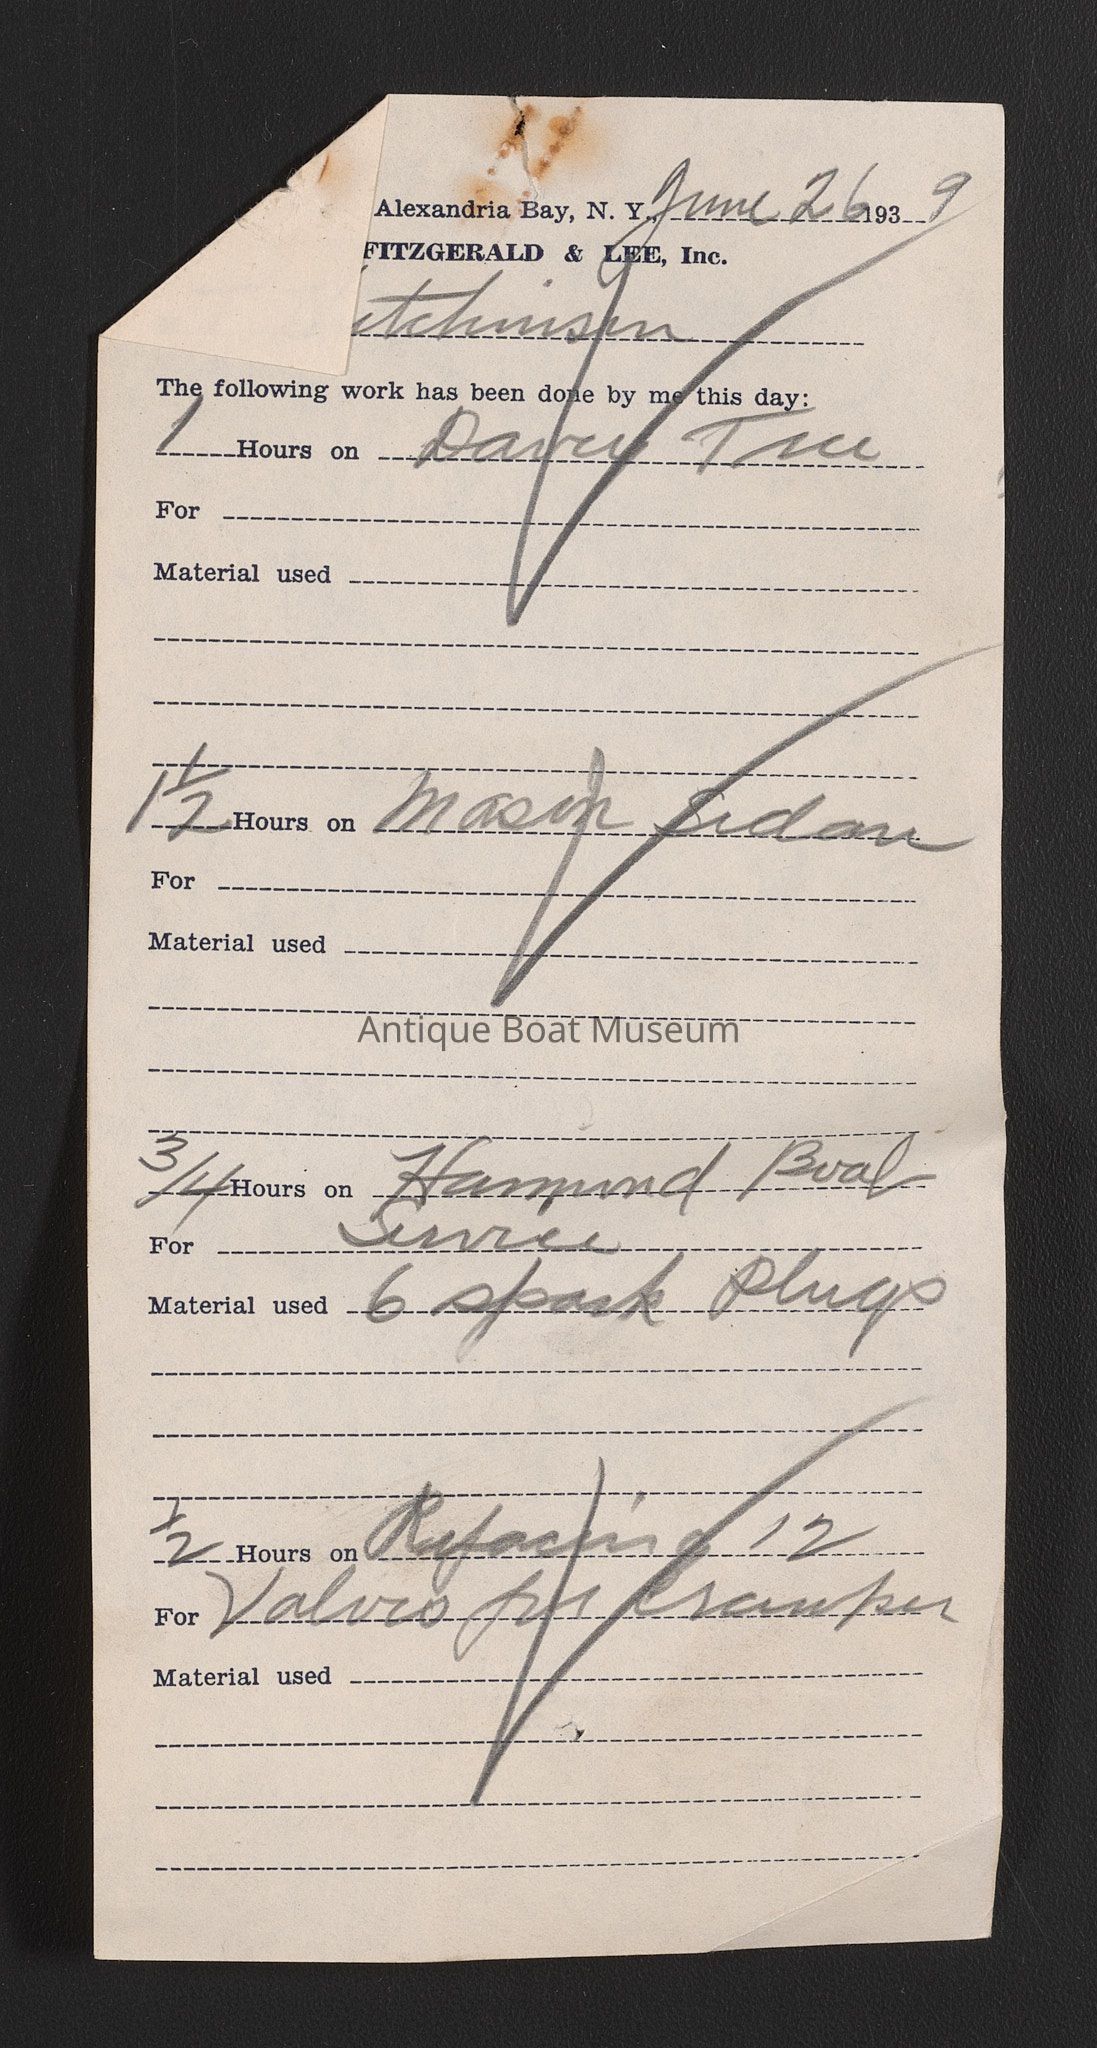 Alexandria Bay, N. Y., June 26 193 9
FITZGERALD & LEE, Inc.
utchinson
The following work has been done by me this day:
1 Hours on Davey Tree
For
Material used
1 1/2 Hours on Mason Sedan
For
Material used
Antique Boat Museum
3/4 Hours on Hammond Boat
For Service
Material used 6 spark plugs
1/2 Hours on Refacing 12
For Valves for
Material used